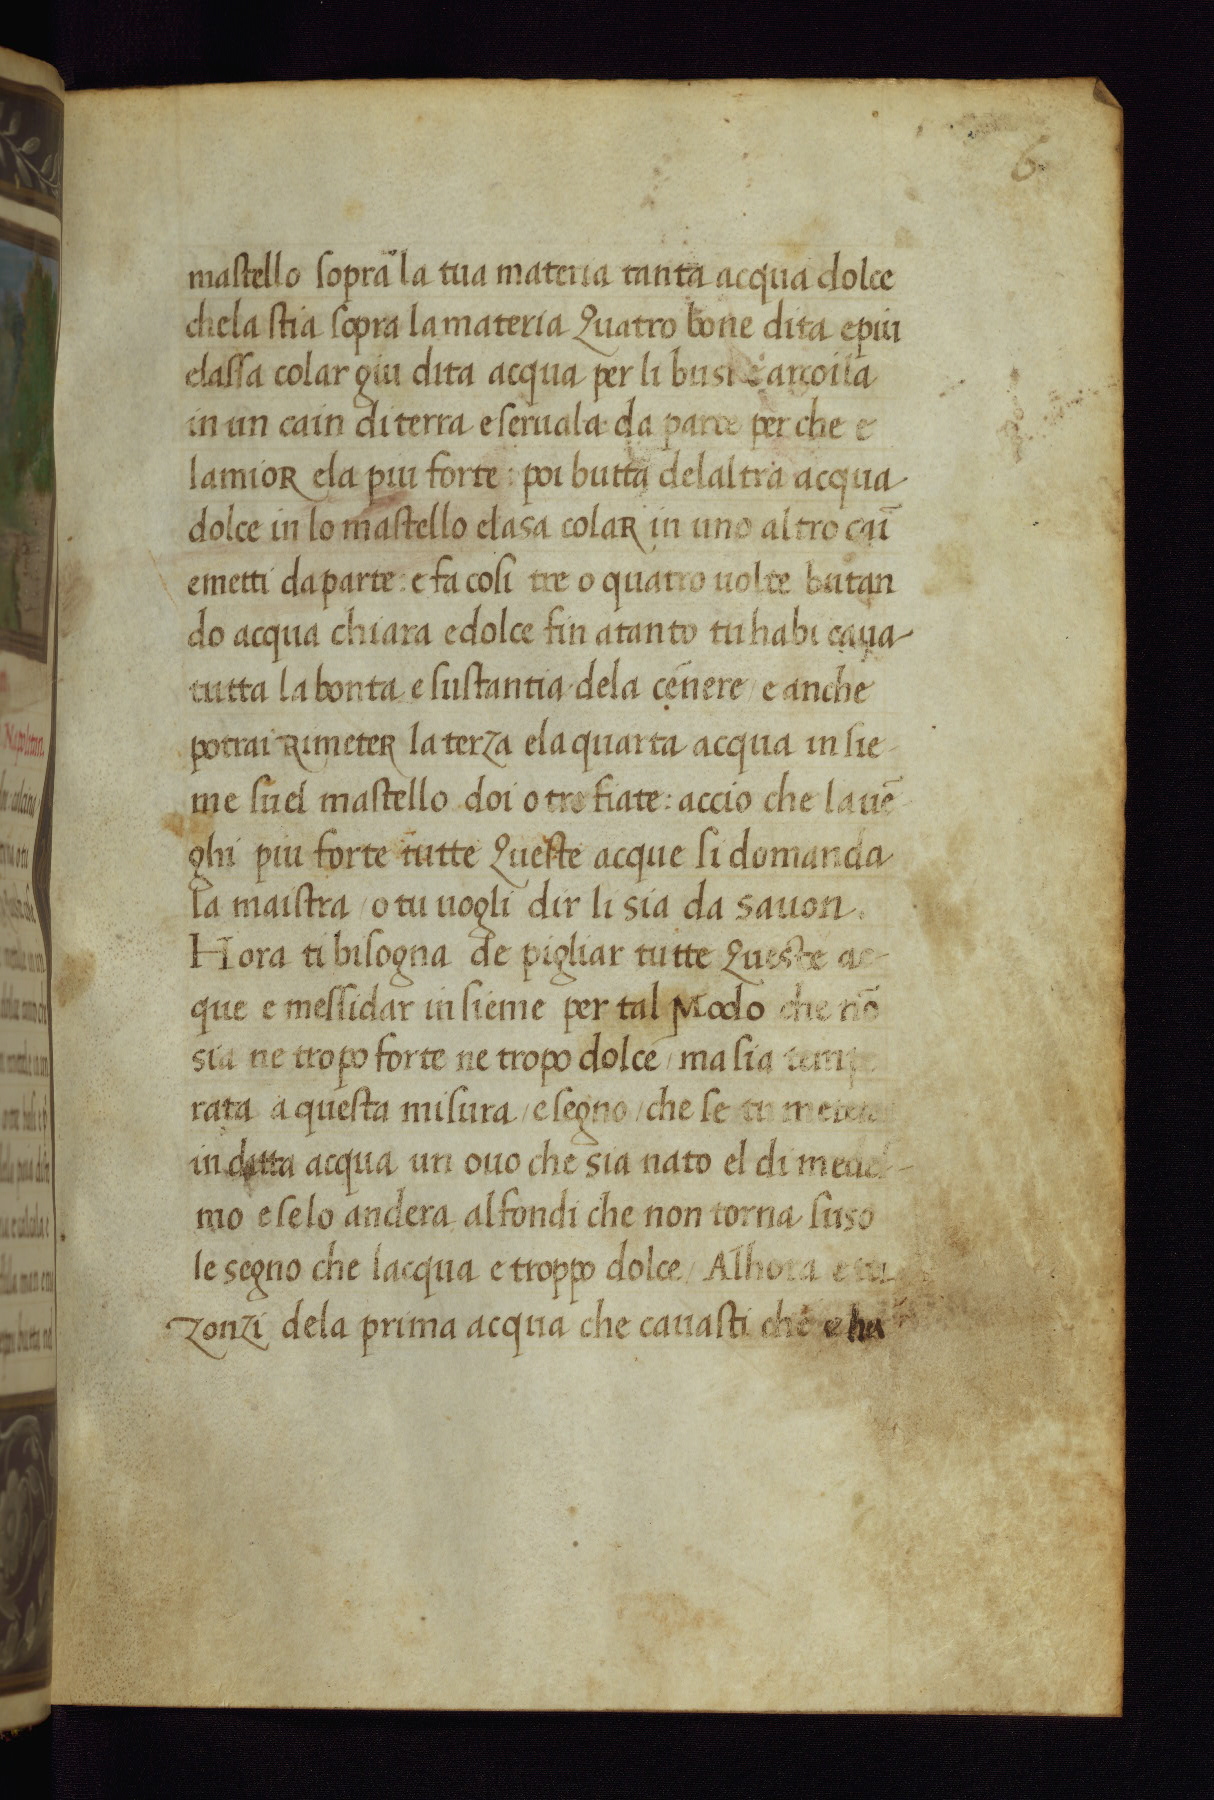 6
mastello sopra la tua materia tanta acqua dolce
chela stia sopra la materia Quatro bone dita e piu
elassa colar giu dita acqua per li busi arcoila
in un cain di terra e seruala da parte per che e
lamior ela piu forte : poi butta delaltra acqua
dolce in lo mastello elasa colar in uno altro caī
emetti da parte : e fa cosi tre o quatro uolte butan
do acqua chiara e dolce fin atanto tu habi caua
tutta la bonta e sustantia dela cenere / e anche
potrai rimeter la terza ela quarta acqua insie
me su el mastello doi o tre fiate : accio che la uē
ghi piu forte tutte Queste acque si domanda
la maistra / o tu uogli dir lisia da sauon .
Hora ti bisogna de pigliar tutte Queste ac-
que e messidar insieme per tal Modo che nō
sia ne tropo forte ne tropo dolce / ma sia tempe
rata a questa misura / e segno / che se tu
in ditta acqua un ouo che sia nato el di medes-
mo e se lo andera al fondi che non torna suso
le segno che lacqua e troppo dolce / Alhora
zonzi dela prima acqua che cauasti che e